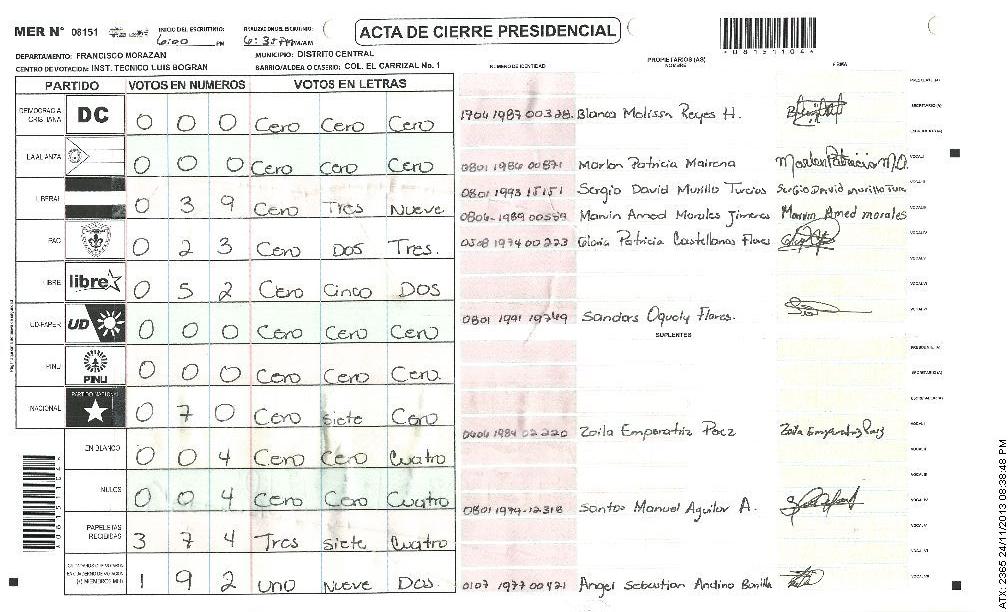 MER N° 08151
INICIO DEL ESCRUTINIO: 6:00 PM
6:35 PM/AM
ACTA DE CIERRE PRESIDENCIAL
DEPARTAMENTO: FRANCISCO MORAZAN
MUNICIPIO: DISTRITO CENTRAL
CENTRO DE VOTACION: INST. TECNICO LUIS BOGRAN
BARRIO/ALDEA O CASERIO: COL. EL CARRIZAL No. 1
NUMERO DE IDENTIDAD
PROPIETARIOS (AS)
NOMBRE
FIRMA
PARTIDO VOTOS EN NUMEROS VOTOS EN LETRAS
DEMOCRACIA CRISTIANA DC 0 0 0 Cero Cero Cero
LA ALIANZA 0 0 0 Cero Cero Cero
LIBERAL 0 3 9 Cero Tres Nueve
PAC 0 2 3 Cero Dos Tres.
LIBRE libre 0 5 2 Cero Cinco DOS
UD-FAPER UD 0 0 0 Cero Cero Cero
PINU PINU 0 0 0 Cero Cero Cero
NACIONAL PARTIDO NACIONAL 0 7 0 Cero siete Cero
EN BLANCO 0 0 4 Cero Cero Cuatro
NULOS 0 0 4 Cero Cero Cuatro
PAPELETAS RECIBIDAS 3 7 4 Tres siete Cuatro
1 9 2 uno Nueve Dos
1704 1987 00328 Blanca Melissa Reyes H.
0801 1986 00871 Marlon Patricia Mairena
0801 1993 15151 Sergio David Murillo Turcios Sergio David Murillo Turc
0806-1989 00559 Marvin Amed Morales Jimenes Marvin Amed morales
0508 1974 00223 Gloria Patricia Castellanos Flores
0801 1991 19749 Sanders Oquely Flores.
SUPLENTES
0404 1984 02220 Zoila Emperatriz Paez Zoila Emperatriz Paez
0801-1974-12318 Santos Manuel Aguilar A.
0107 1977 00421 Angel Sebastian Andino Bonilla
ATX: 2365 24/11/2013 08:38:48 PM